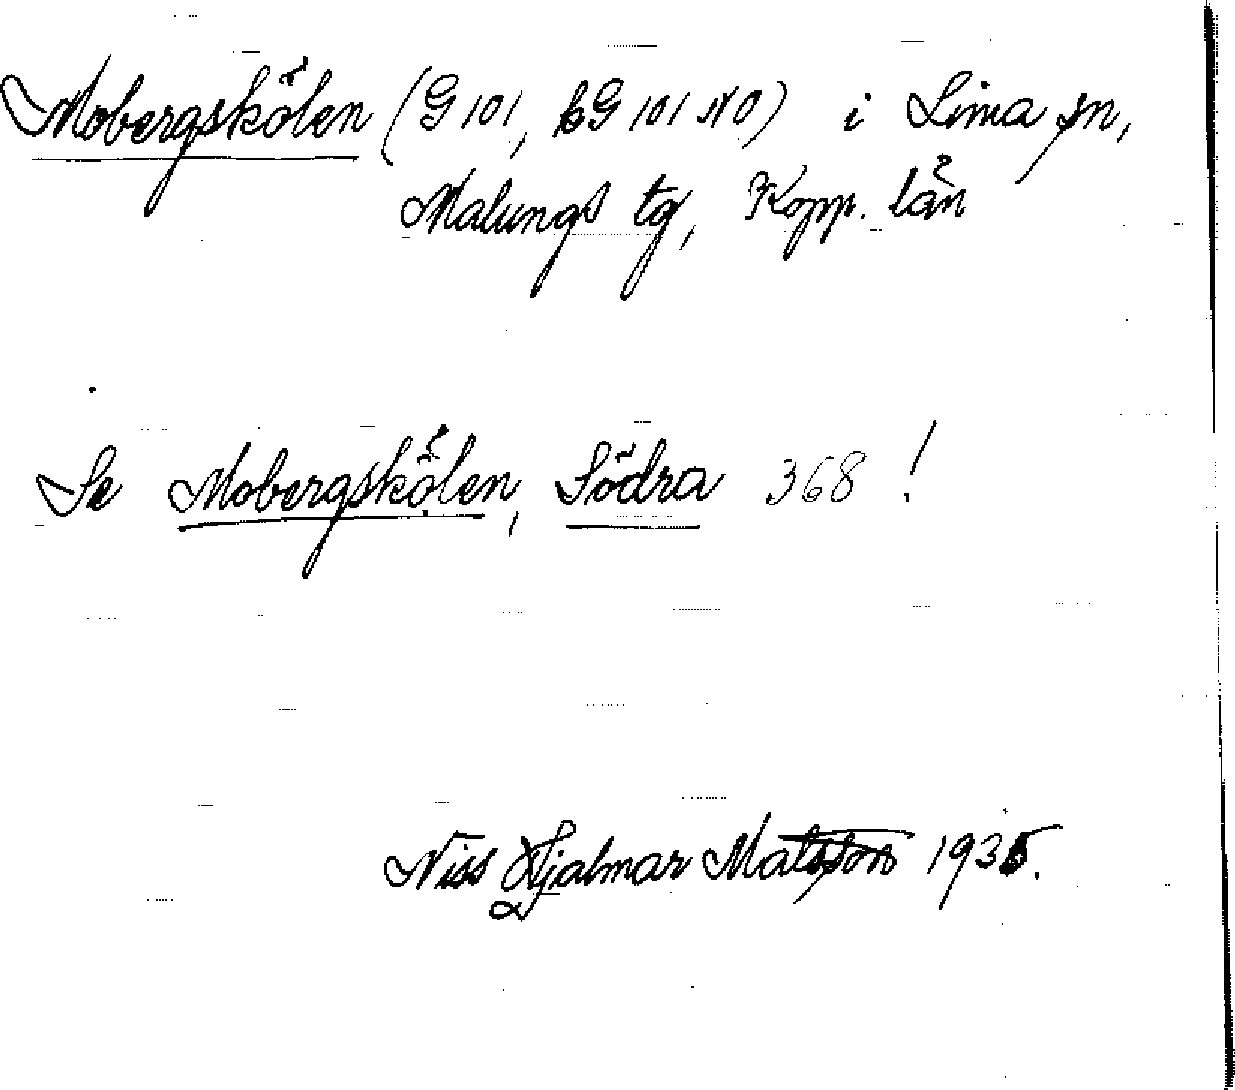 Mobergskölen (G 101, kG 101 NO) i Lima sn,
Malungs tg, Kopp. län
Se Mobergskölen, Södra 368 !
Niss Hjalmar Matsson 1935.